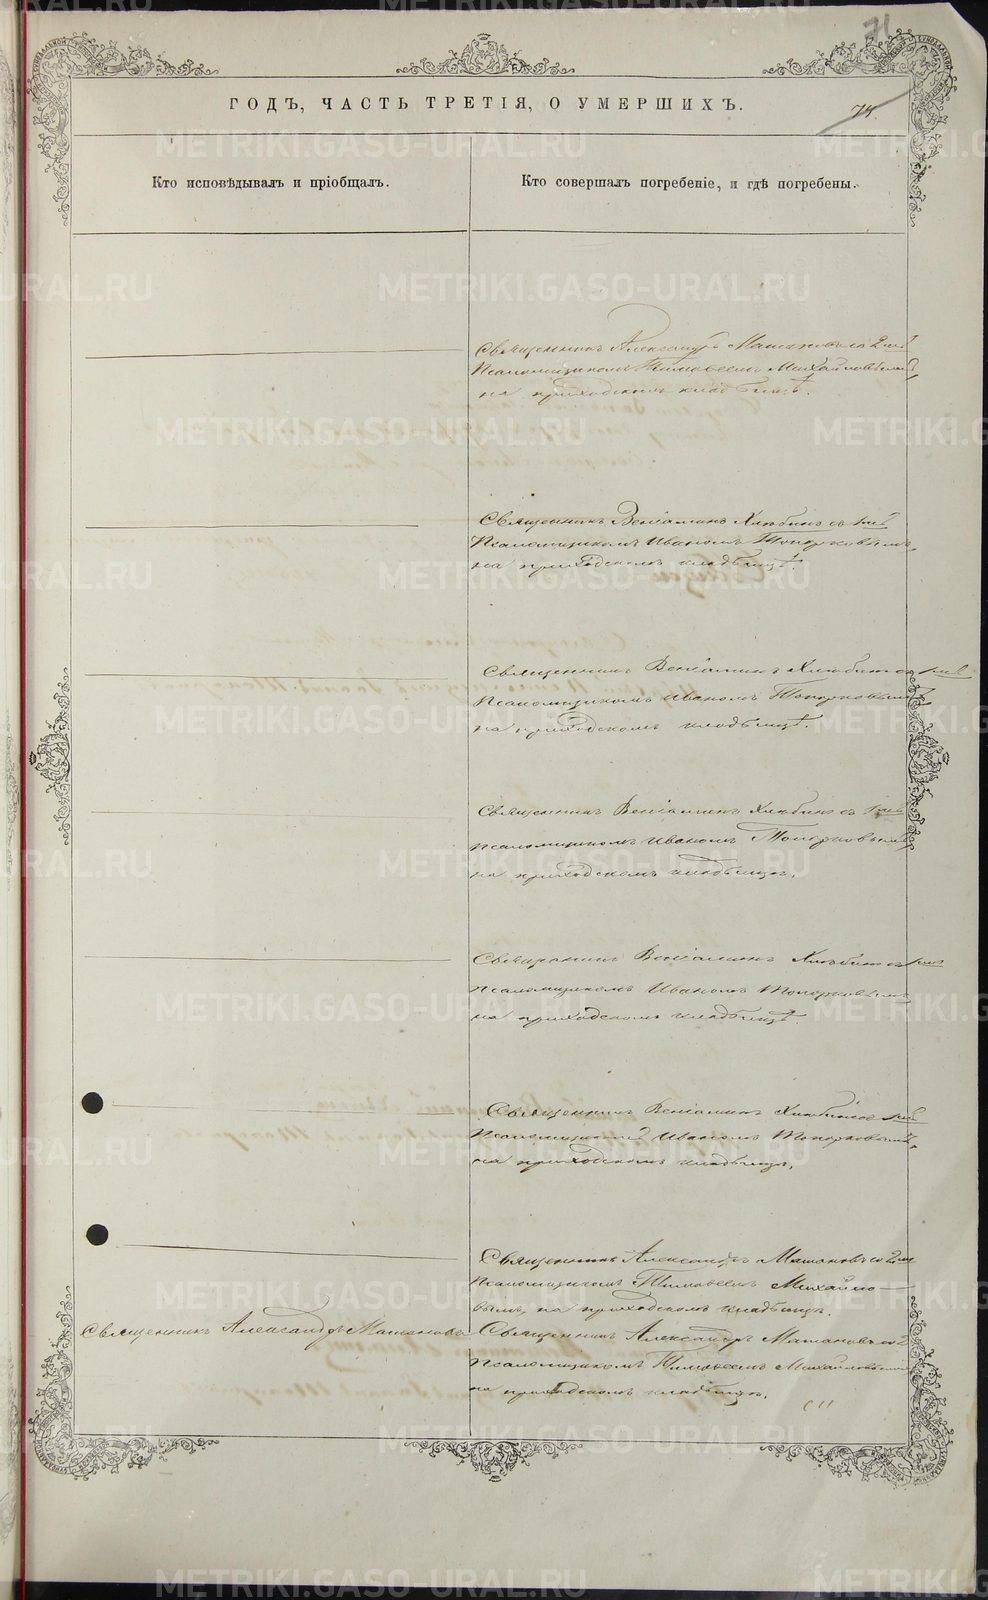 71
ГОДЪ, ЧАСТЬ ТРЕТІЯ, О УМЕРШИХЪ.
74.
Кто исповѣдывалъ и пріобщалъ.
Кто совершалъ погребеніе, и гдѣ погребены.
Священникъ Александръ Матановъ со 2мъ
Псаломщикомъ Тимовеемъ Михайловымъ,
на приходскомъ кладбищѣ.
Священникъ Веніаминъ Хлѣбинъ съ 1мъ
Псаломщикомъ Иваномъ Топорковымъ,
на приходскомъ кладбищѣ.
Священникъ Веніаминъ Хлѣбинъ съ 1мъ
Псаломщикомъ Иваномъ Топорковымъ
на приходскомъ кладбищѣ.
Священникъ Веніаминъ Хлѣбинъ съ 1мъ
псаломщикомъ Иваномъ Топорковымъ
на приходскомъ кладбищѣ.
Священникъ Веніаминъ Хлѣбинъ съ 1мъ
псаломщикомъ Иваномъ Топорковымъ
на приходскомъ кладбищѣ.
Священникъ Веніаминъ Хлѣбинъ съ 1мъ
Псаломщикомъ Иваномъ Топорковымъ,
на приходскомъ кладбищѣ.
Священникъ Александръ Матановъ со 2мъ
Псаломщикомъ Тимовеемъ Михайло-
вымъ, на приходскомъ кладбищѣ.
Священникъ Александръ Матановъ
Священникъ Александръ Матановъ со 2
Псаломщикомъ Тимовеемъ Михайловымъ
на приходскомъ кладбищѣ.
METRIKI.GASO-URAL.RU